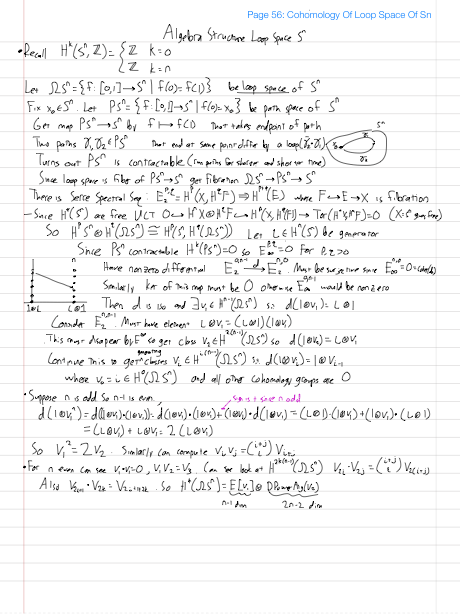 Page 56: Cohomology Of Loop Space Of Sn
Algebra Structure Loop Space Sⁿ
• Recall Hᵏ(Sⁿ, ℤ) = { ℤ k=0
ℤ k=n
Let ΩSⁿ = {f: [0,1]→Sⁿ | f(0)=f(1)} be loop space of Sⁿ
Fix x₀∈Sⁿ. Let PSⁿ = {f: [0,1]→Sⁿ | f(0)=x₀} be path space of Sⁿ
Get map PSⁿ→Sⁿ by f↦f(1) that takes endpoint of path
Two paths γ₁,γ₂∈PSⁿ that end at same point differ by a loop
Sⁿ
x₀
γ₁
γ₂
Turns out PSⁿ is contractable (run paths for shorter and shorter time)
Since loop space is fiber of PSⁿ→Sⁿ get fibration ΩSⁿ→PSⁿ→Sⁿ
There is Serre Spectral Seq: E₂^{p,q} = Hᵖ(X, H^q F) ⇒ H^{p+q}(E) where F↔E→X is fibration
– Since Hᵖ(Sⁿ) are free, UCT 0→HᵖX⊗H^qF→Hᵖ(X, H^q(F))→Tor(
So HᵖSⁿ⊗H^q(ΩSⁿ) ≅ Hᵖ(Sⁿ, H^q(ΩSⁿ)) Let L∈Hⁿ(Sⁿ) be generator
Since PSⁿ contractable Hᵏ(PSⁿ)=0 so E∞^{p,q}=0 for p,q>0
Have nonzero differential E₂^{0,n-1} →d E₂^{n,0}. Must be surjective since E∞^{n,0}=0=coker(d)
Similarly ker of this map must be 0 otherwise E∞^{0,n-1} would be nonzero
n
1⊗1
L⊗1
Then d is iso and ∃v₁∈H^{n-1}(ΩSⁿ) s.t. d(1⊗v₁)=L⊗1
Consider E₂^{n,n-1}. Must have element L⊗v₁=(L⊗1)(1⊗v₁)
This must disapear by E^∞ so get class v₂∈H^{2(n-1)}(ΩSⁿ) so d(1⊗v₂)=L⊗v₁
Continue this to get generating classes vᵢ∈H^{i(n-1)}(ΩSⁿ) s.t.
where v₀=1∈H⁰(ΩSⁿ) and all other cohomology groups are 0
• Suppose n is odd so n-1 is even.
sign is + since n odd
d(1⊗v₁²)=d((1⊗v₁)·(1⊗v₁))=d(1⊗v₁)·(1⊗v₁)+(1⊗v₁)·d(1⊗v₁)=(L⊗1)·(1⊗v₁)+(1⊗v₁)·(L⊗1)
=(L⊗v₁)+L⊗v₁=2(L⊗v₁)
So v₁²=2v₂. Similarly can compute vᵢvⱼ=(i+j choose i)v_{i+j}
• For n even can see v₁·v₁=0, v₁v₂=v₃. Can look at H^{2k(n-1)}(ΩSⁿ) v₂ᵢ·v₂ⱼ=(i+j choose i)v_{2(i+j)}
Also v_{2i+1}·v_{2k}=v_{2i+1+2k}. So H*(ΩSⁿ)=E[v₁]⊗
n-1 dim
2n-2 dim